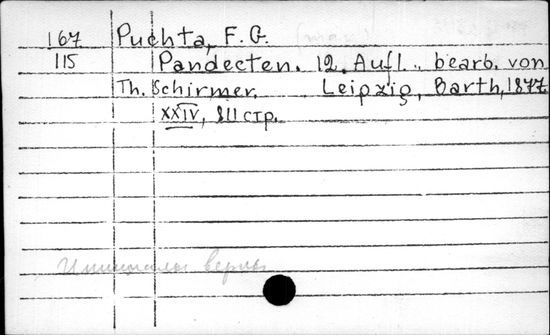 167 Puchta, F. G.
115 Pandecten. 12. Aufl. bearb. von
Th. Schirmer. Leipzig, Barth, 1877.
XXIV, 811 стр.
Инициалы верны